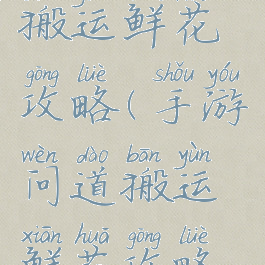 搬运鲜花
gōng lüè shǒu yóu
攻略(手游
wèn dào bān yùn
问道搬运
xiān huā gōng lüè
鲜花攻略